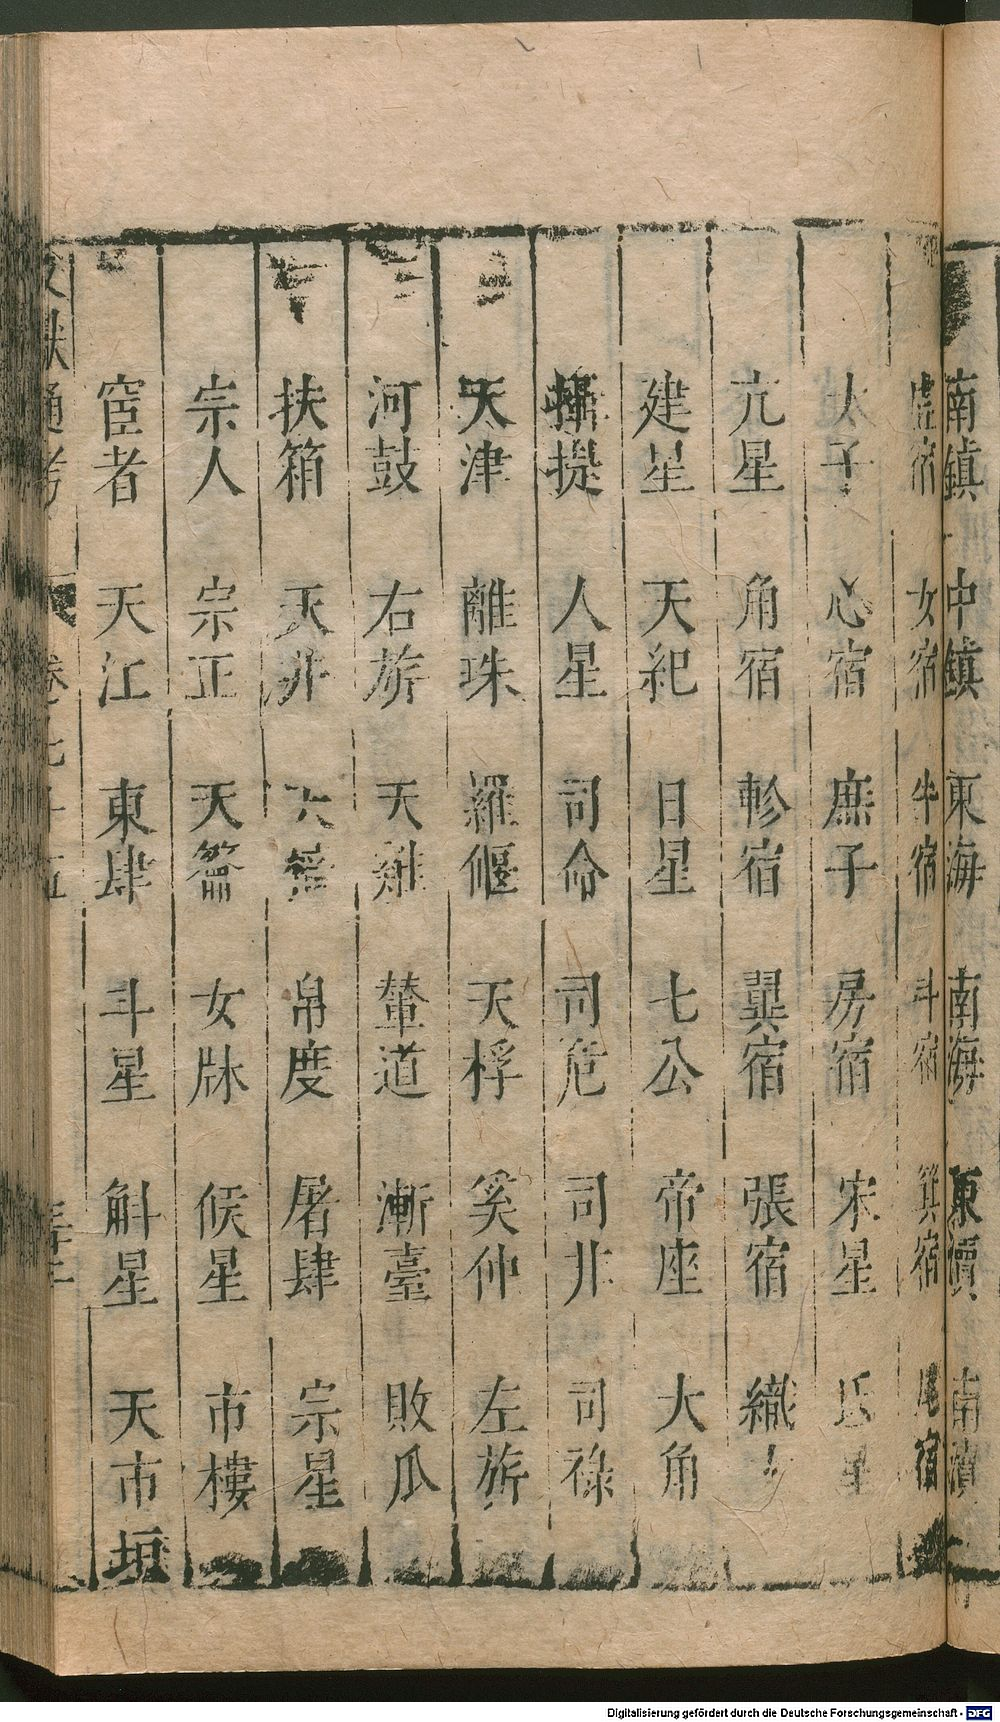 南鎮 中鎮 東海 南海 東瀆 南瀆
虛宿 女宿 牛宿 斗宿 箕宿 尾宿
太子 心宿 庶子 房宿 宋星
亢星 角宿 軫宿 翼宿 張宿 織女
建星 天紀 日星 七公 帝座 大角
攝提 人星 司命 司危 司非 司祿
天津 離珠 羅堰 天桴 奚仲 左旂
河鼓 右旂 天雞 輦道 漸臺 敗瓜
扶箱 天弁 帛度 屠肆 宗星
宗人 宗正 天籥 女牀 候星 市樓
宦者 天江 東肆 斗星 斛星 天市垣
文獻通考 卷七十五
Digitalisierung gefördert durch die Deutsche Forschungsgemeinschaft - DFG